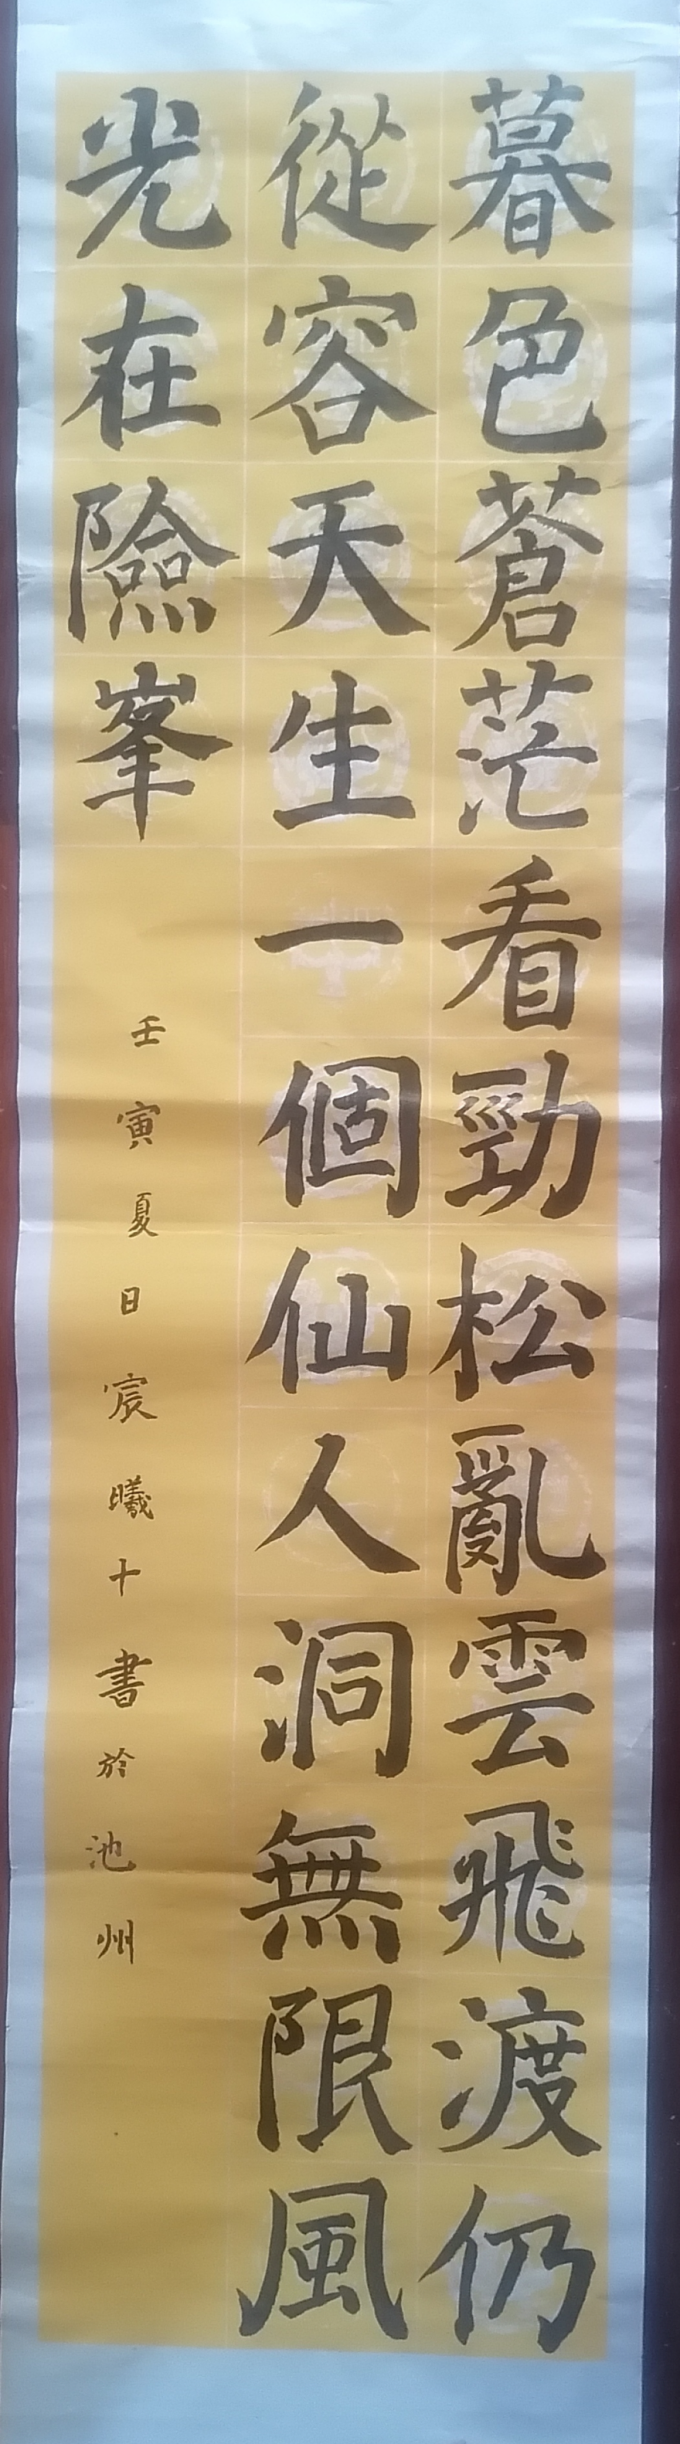 暮色蒼茫看勁松亂雲飛渡仍
從容天生一個仙人洞無限風
光在險峯
壬寅夏日宸曦十書於池州